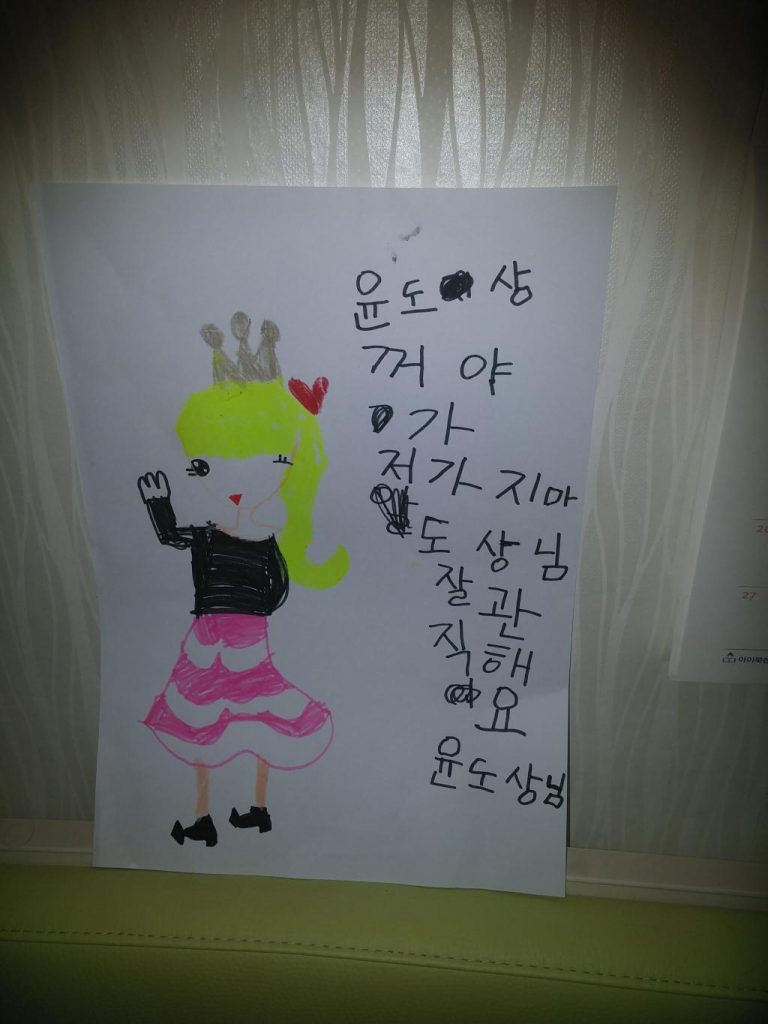 윤도 상
꺼 야
가
저가 지마
도 상 님
잘 관
직해
요
윤도상님
27
아이북랜